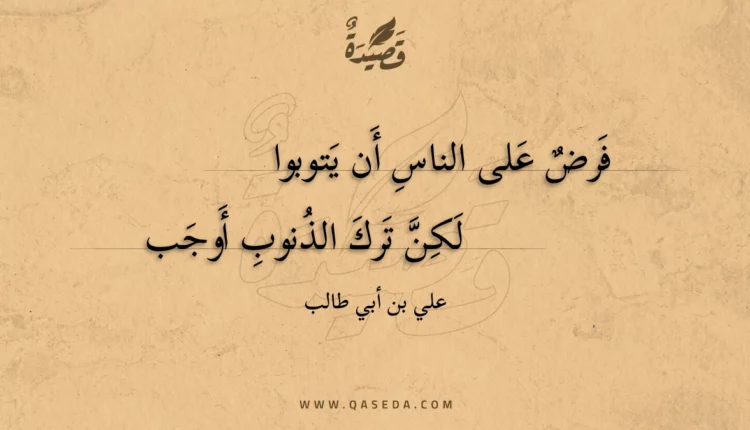 قَصِيدَةٌ
فَرضٌ عَلى الناسِ أَن يَتوبوا
لَكِنَّ تَركَ الذُنوبِ أَوجَب
علي بن أبي طالب
WWW.QASEDA.COM